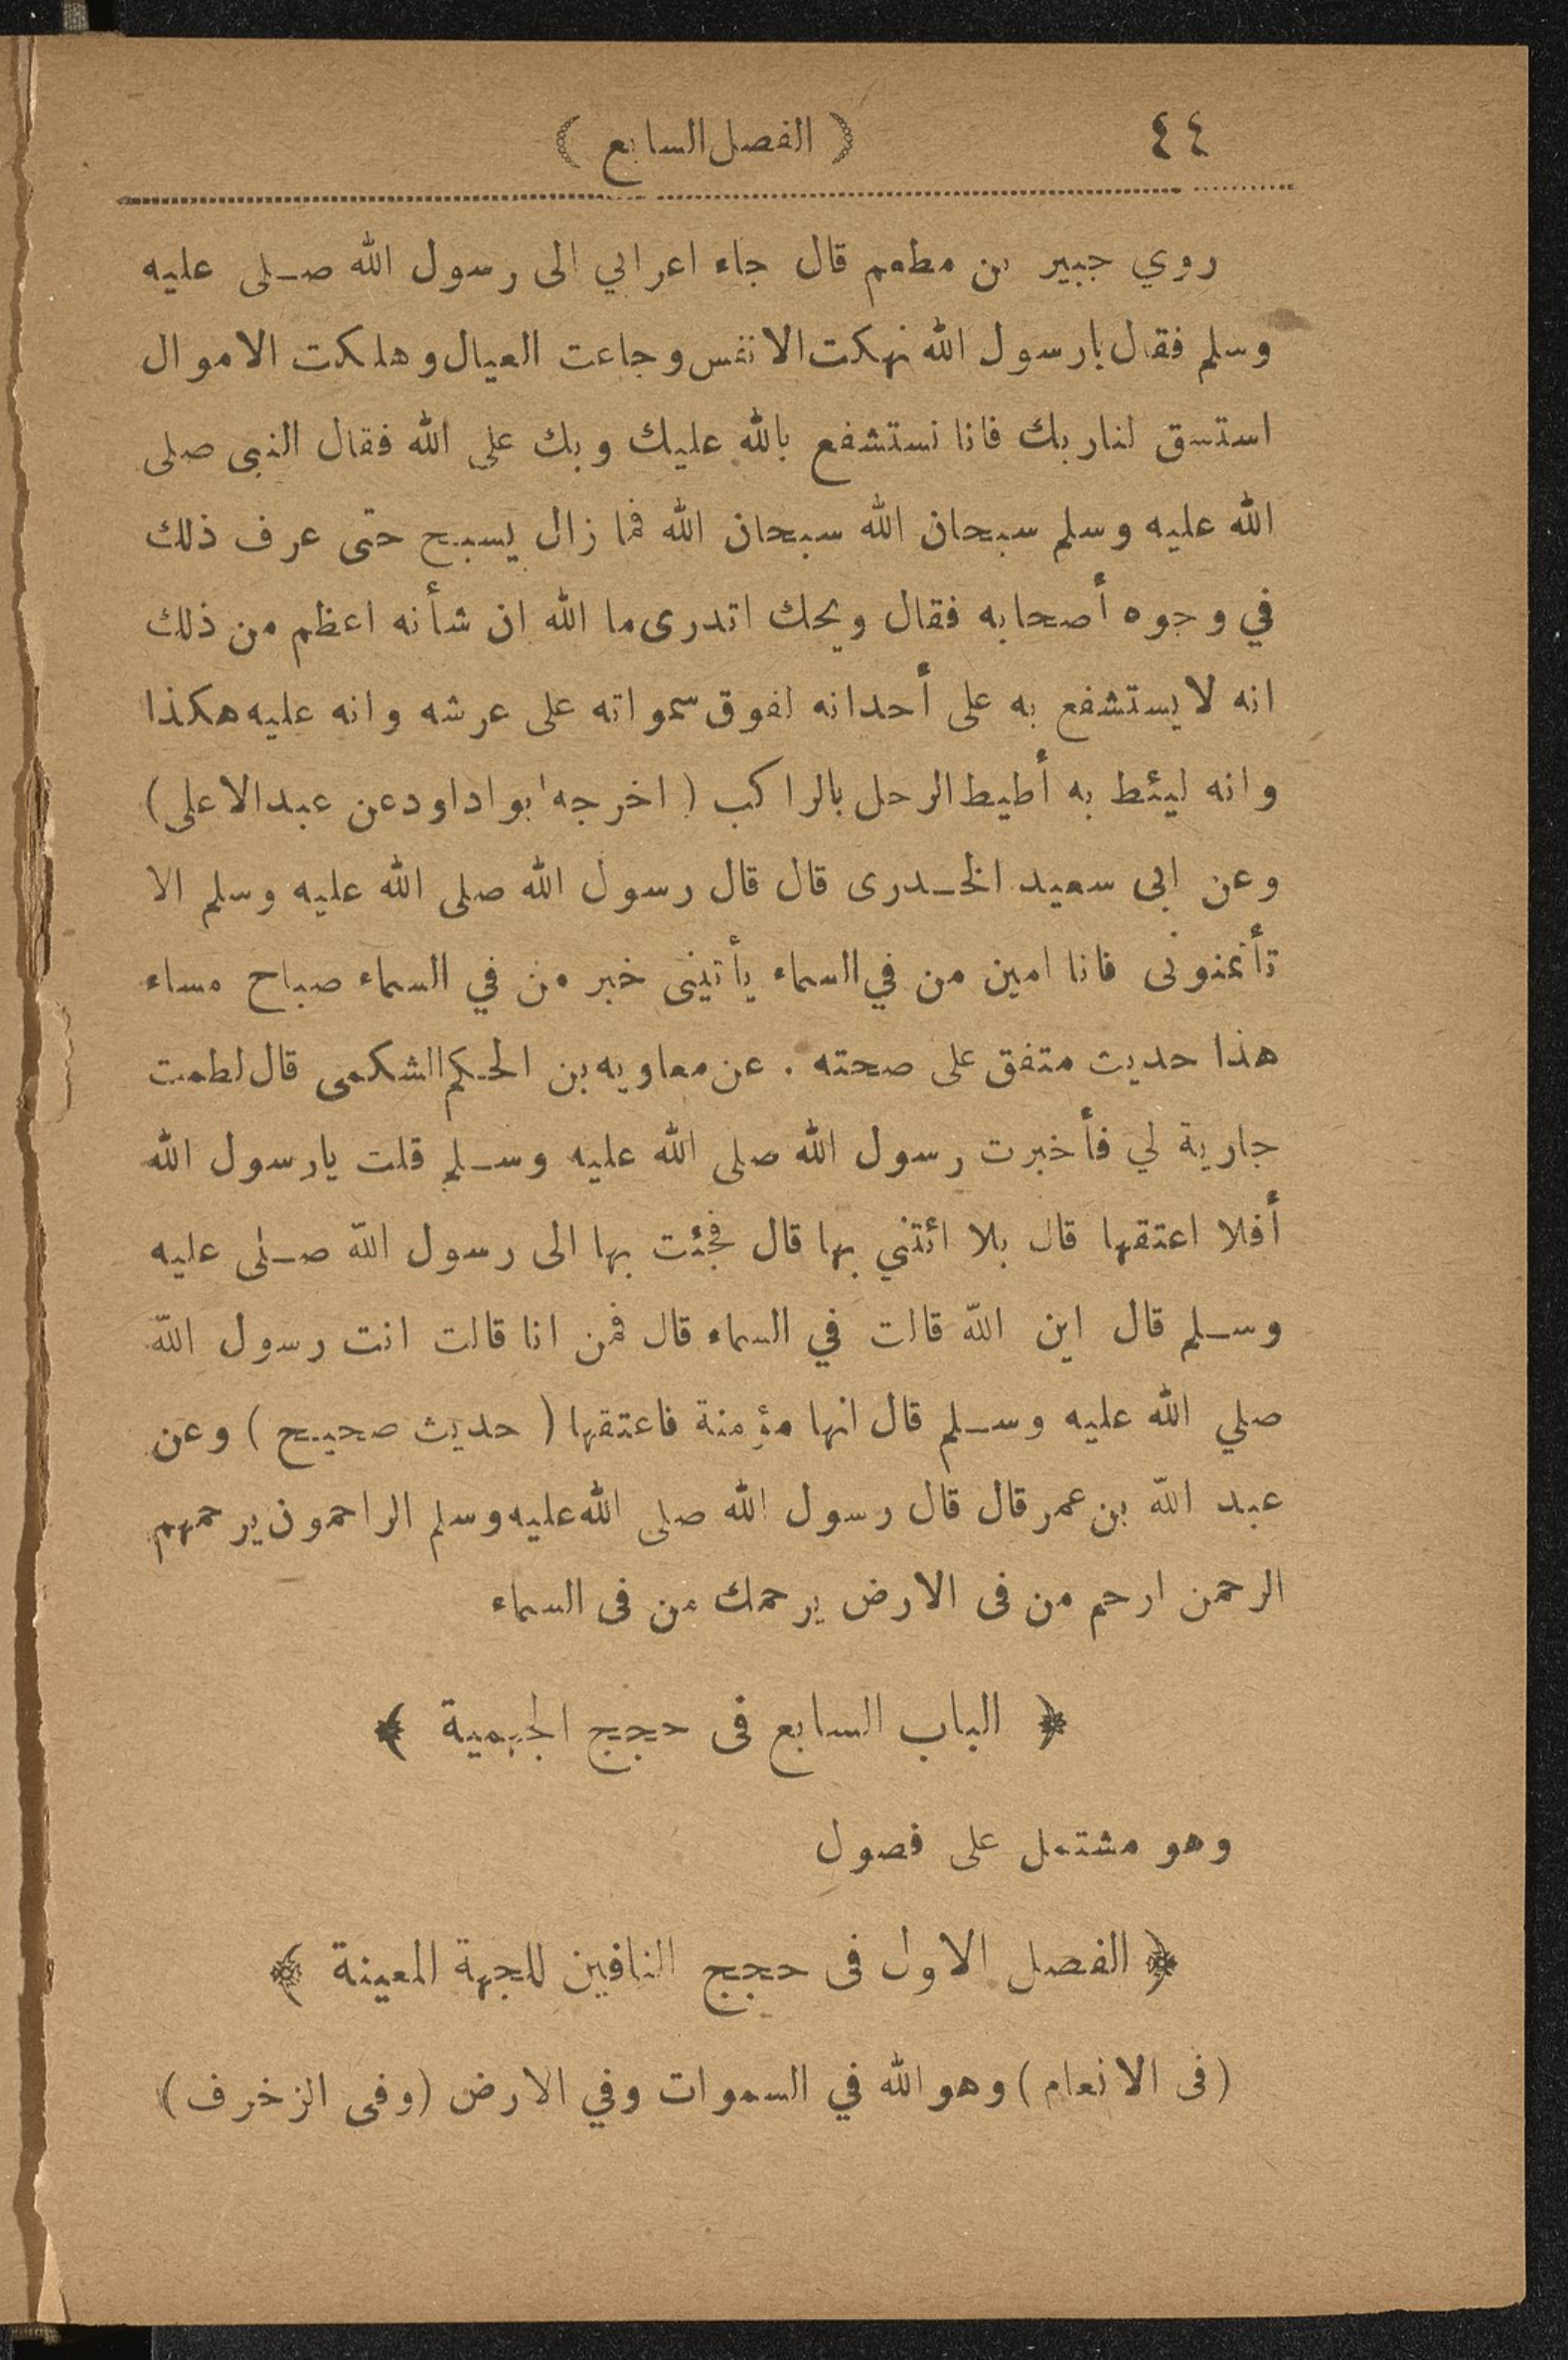 ٤٤ ( الفصل السابع )
روي جبير بن مطعم قال جاء اعرابي الى رسول الله صلى عليه
وسلم فقال يارسول الله نهكت الانفس وجاعت العيال وهلكت الاموال
استسق لنا ربك فانا نستشفع بالله عليك وبك على الله فقال النبى صلى
الله عليه وسلم سبحان الله سبحان الله فما زال يسبح حتى عرف ذلك
في وجوه أصحابه فقال ويحك اتدرى ما الله ان شأنه اعظم من ذلك
انه لا يستشفع به على أحد انه لفوق سمواته على عرشه وانه عليه هكذا
وانه ليئط به أطيط الرحل بالراكب ( اخرجه ابو اداود عن عبد الاعلى )
وعن ابى سعيد الخدرى قال قال رسول الله صلى الله عليه وسلم الا
تأتمنونى فانا امين من في السماء يأتينى خبر من في السماء صباح مساء
هذا حديث متفق على صحته . عن معاويه بن الحكم الشكمى قال لطمت
جارية لي فأخبرت رسول الله صلى الله عليه وسلم قلت يارسول الله
أفلا اعتقها قال بلا ائتني بها قال فجئت بها الى رسول الله صلى عليه
وسلم قال اين الله قالت في السماء قال فمن انا قالت انت رسول الله
صلي الله عليه وسلم قال انها مؤمنة فاعتقها ( حديث صحيح ) وعن
عبد الله بن عمر قال قال رسول الله صلى الله عليه وسلم الراحمون يرحمهم
الرحمن ارحم من فى الارض يرحمك من فى السماء
﴿ الباب السابع فى حجج الجهمية ﴾
وهو مشتمل على فصول
﴿ الفصل الاول فى حجج النافين للجهة المعينة ﴾
(فى الانعام) وهو الله في السموات وفي الارض (وفى الزخرف)